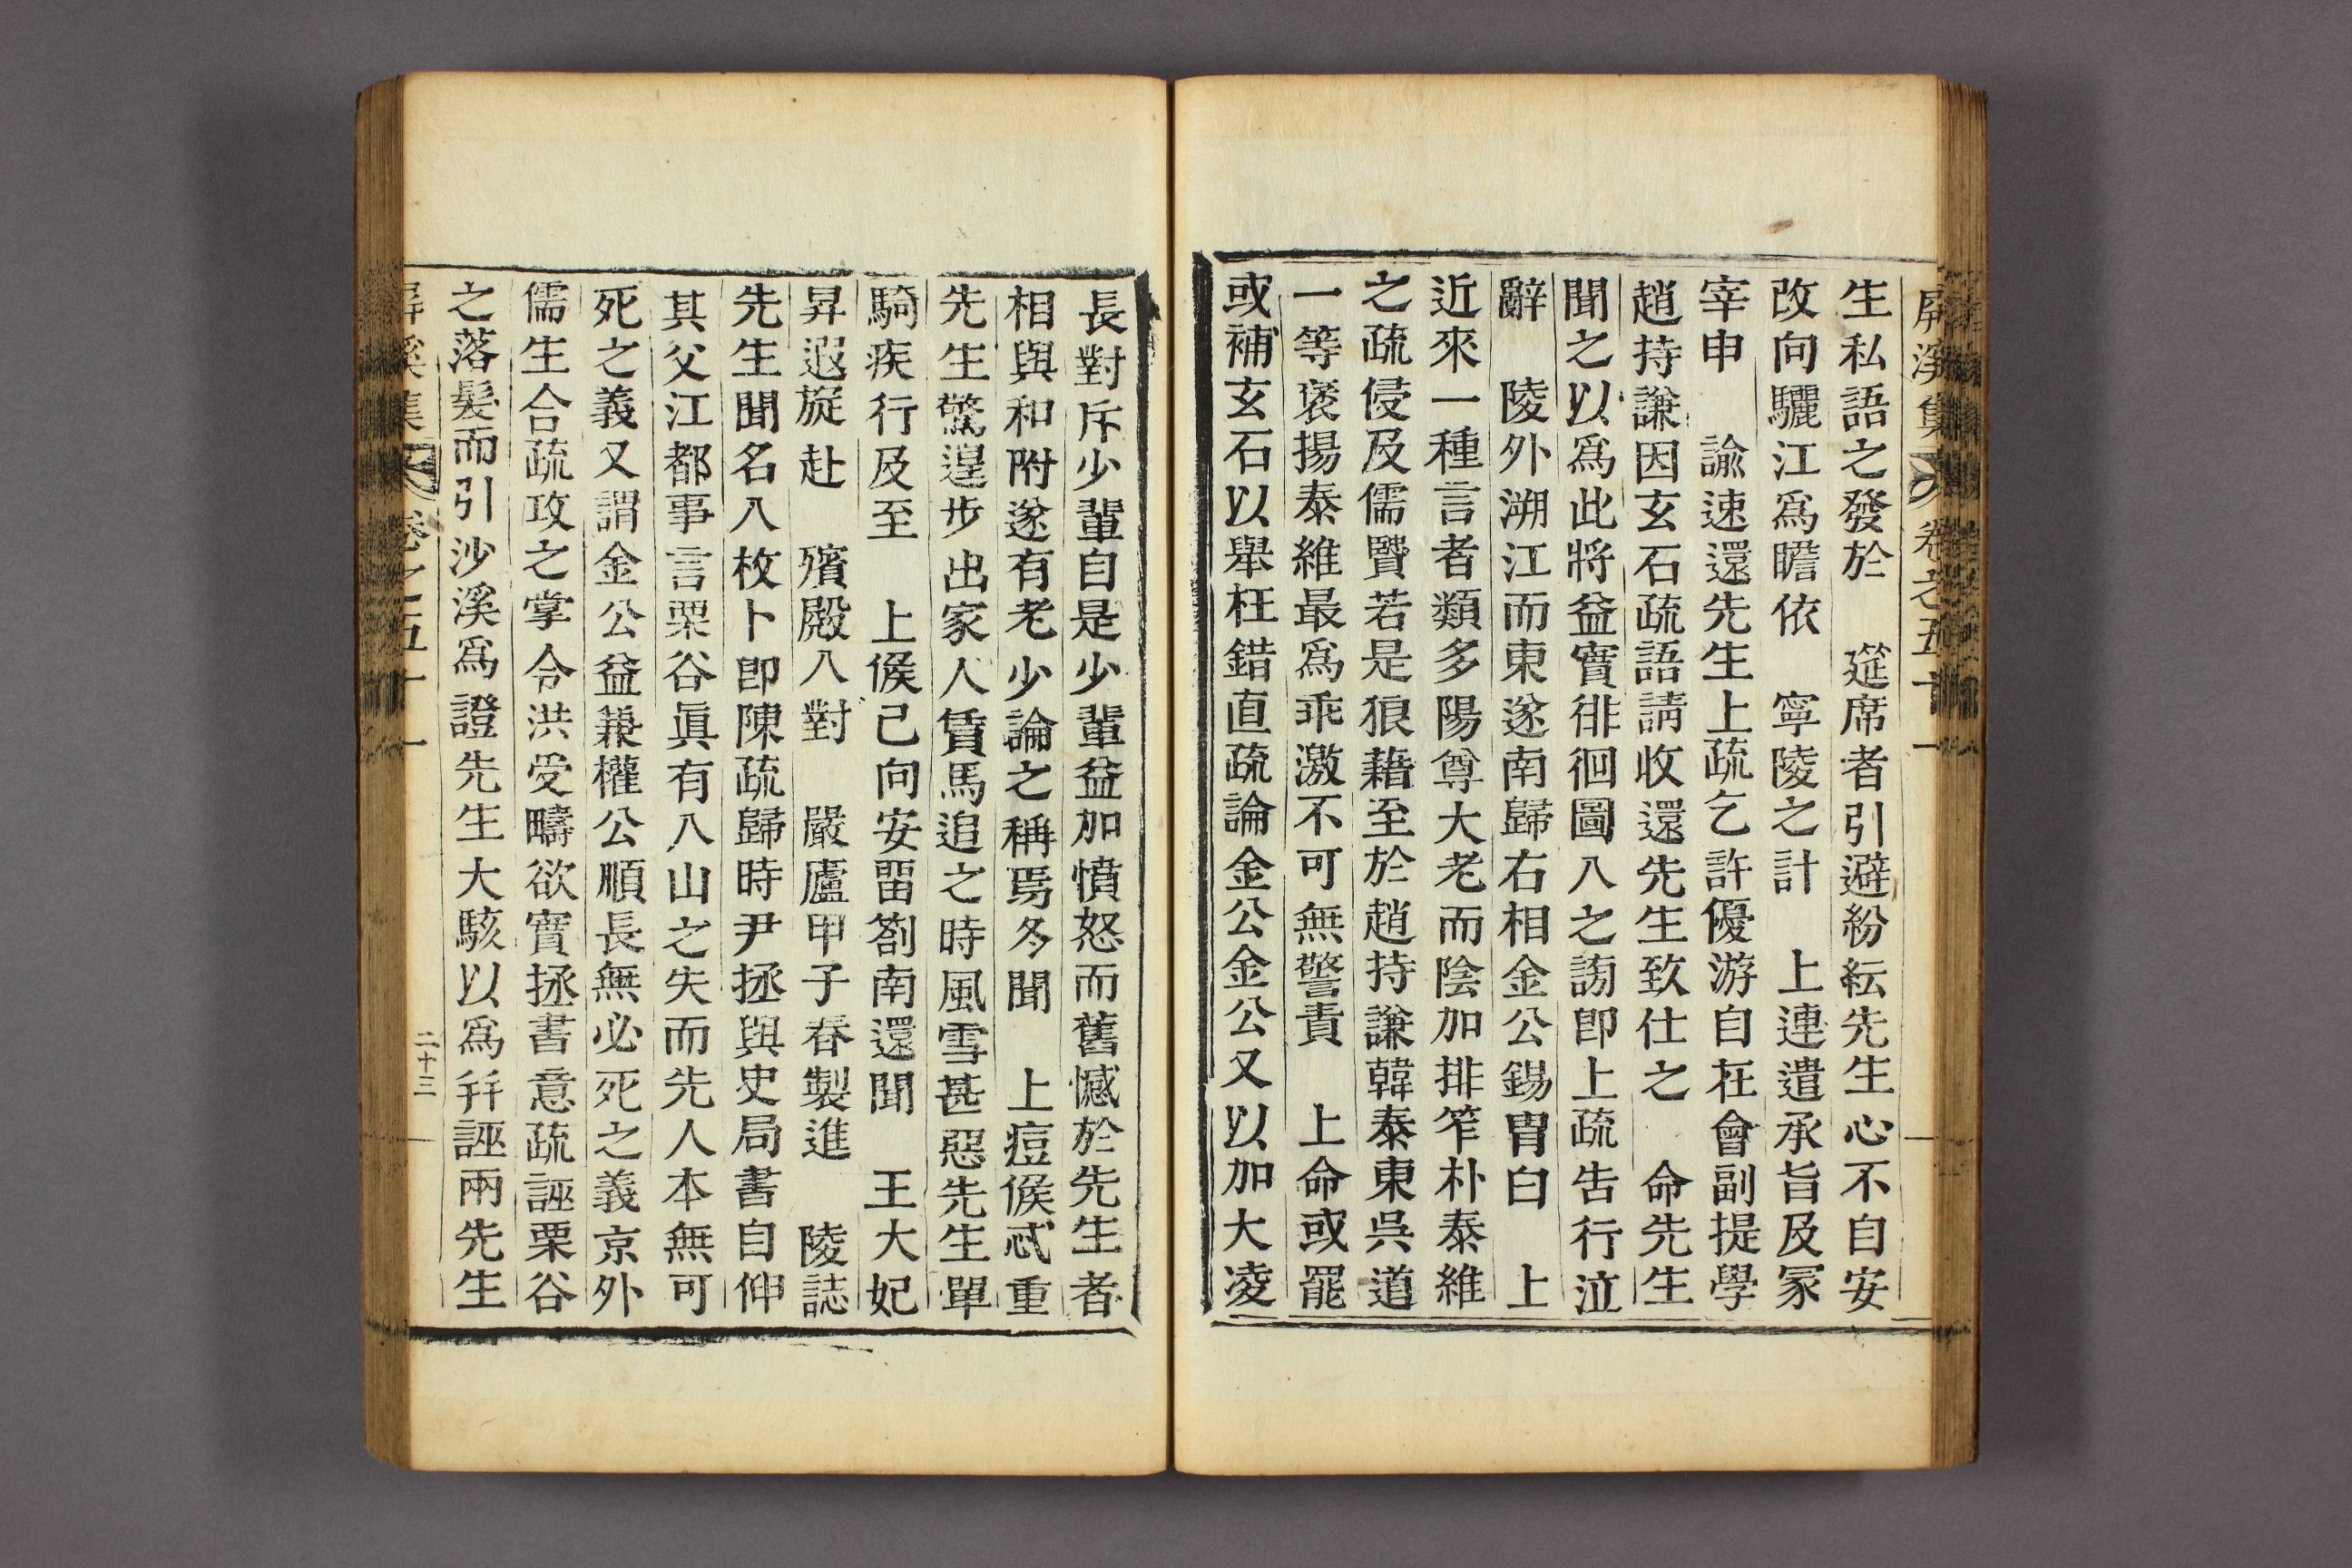 屛溪集 卷之五十一
生私語之發於 筵席者引避紛紜先生心不自安
改向驪江爲瞻依 寧陵之計 上連遣承旨及冢
宰申 諭速還先生上疏乞許優游自在會副提學
趙持謙因玄石疏語請收還先生致仕之 命先生
聞之以爲此將益實徘徊圖入之謗卽上疏告行泣
辭 陵外溯江而東遂南歸右相金公錫胄白 上
近來一種言者類多陽尊大老而陰加排笮朴泰維
之疏侵及儒賢若是狼藉至於趙持謙韓泰東吳道
一等褒揚泰維最爲乖激不可無警責 上命或罷
或補玄石以舉枉錯直疏論金公金公又以加大凌
長對斥少輩自是少輩益加憤怒而舊憾於先生者
相與和附遂有老少論之稱焉冬聞 上痘候忒重
先生驚遑步出家人賃馬追之時風雪甚惡先生單
騎疾行及至 上候己向安留箚南還聞 王大妃
昇遐旋赴 殯殿入對 嚴廬甲子春製進 陵誌
先生聞名入枚卜卽陳疏歸時尹拯與史局書自伸
其父江都事言栗谷眞有入山之失而先人本無可
死之義又謂金公益兼權公順長無必死之義京外
儒生合疏攻之掌令洪受疇欲實拯書意疏誣栗谷
之落髮而引沙溪爲證先生大駭以爲幷誣兩先生
屛溪集 卷之五十一 二十三